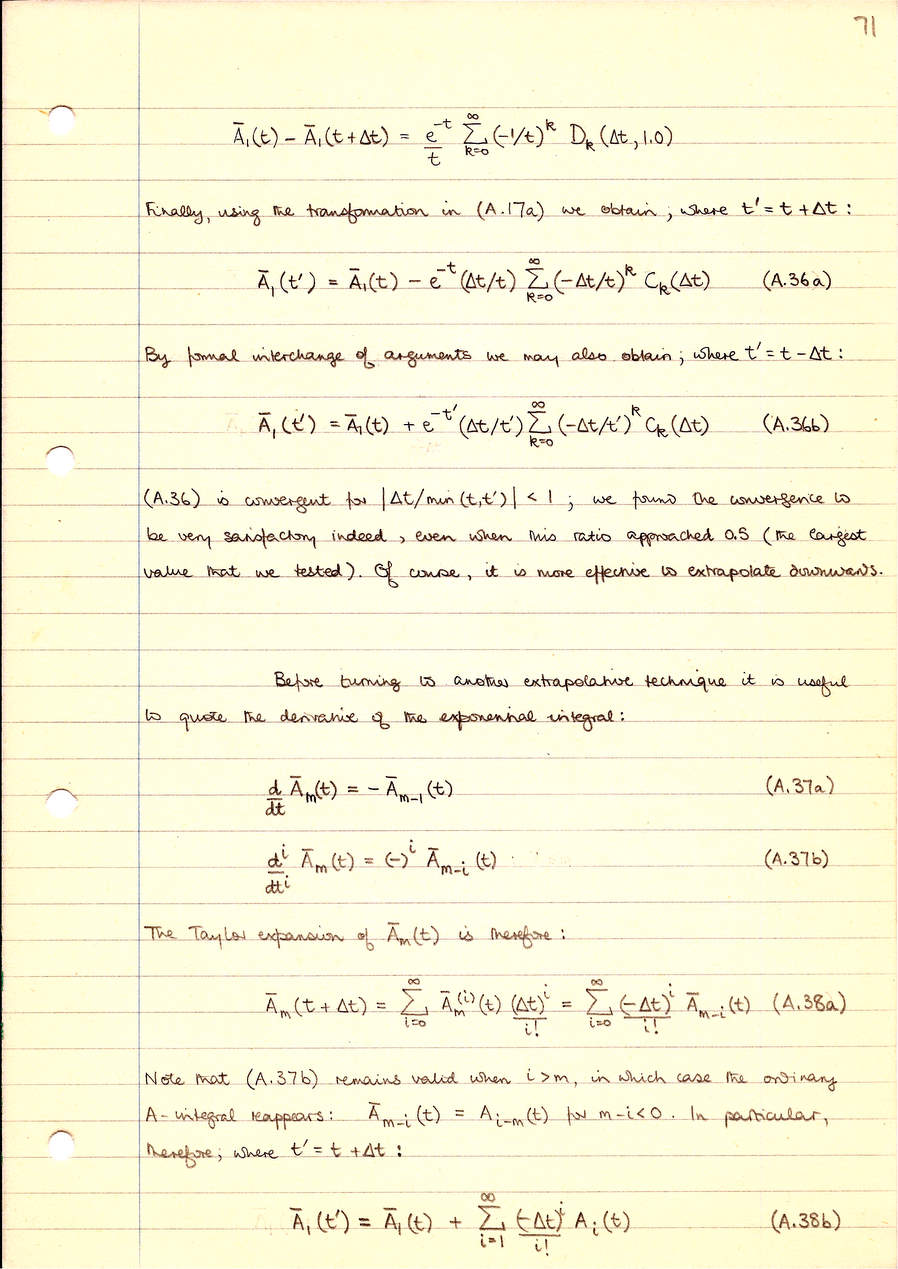 71
Ā₁(t) − Ā₁(t+Δt) = e^{-t}/t ∑_{k=0}^{∞} (−1/t)^k D_k(Δt, 1.0)
Finally, using the transformation in (A.17a) we obtain; where t′ = t + Δt :
Ā₁(t′) = Ā₁(t) − e^{-t}(Δt/t) ∑_{k=0}^{∞} (−Δt/t)^k C_k(Δt) (A.36a)
By formal interchange of arguments we may also obtain; where t′ = t − Δt :
Ā₁(t′) = Ā₁(t) + e^{-t′}(Δt/t′) ∑_{k=0}^{∞} (−Δt/t′)^k C_k(Δt) (A.36b)
(A.36) is convergent for |Δt/min(t,t′)| < 1 ; we found the convergence to
be very satisfactory indeed, even when this ratio approached 0.5 (the largest
value that we tested). Of course, it is more effective to extrapolate downwards.
Before turning to another extrapolative technique it is useful
to quote the derivative of the exponential integral :
d/dt Ā_m(t) = − Ā_{m−1}(t) (A.37a)
d^i/dt^i Ā_m(t) = (−)^i Ā_{m−i}(t) (A.37b)
The Taylor expansion of Ā_m(t) is therefore :
Ā_m(t + Δt) = ∑_{i=0}^{∞} Ā_m^{(i)}(t) (Δt)^i/i! = ∑_{i=0}^{∞} (−Δt)^i/i! Ā_{m−i}(t) (A.38a)
Note that (A.37b) remains valid when i > m, in which case the ordinary
A-integral reappears: Ā_{m−i}(t) = A_{i−m}(t) for m−i < 0. In particular,
therefore; where t′ = t + Δt :
Ā₁(t′) = Ā₁(t) + ∑_{i=1}^{∞} (−Δt)^i/i! A_i(t) (A.38b)